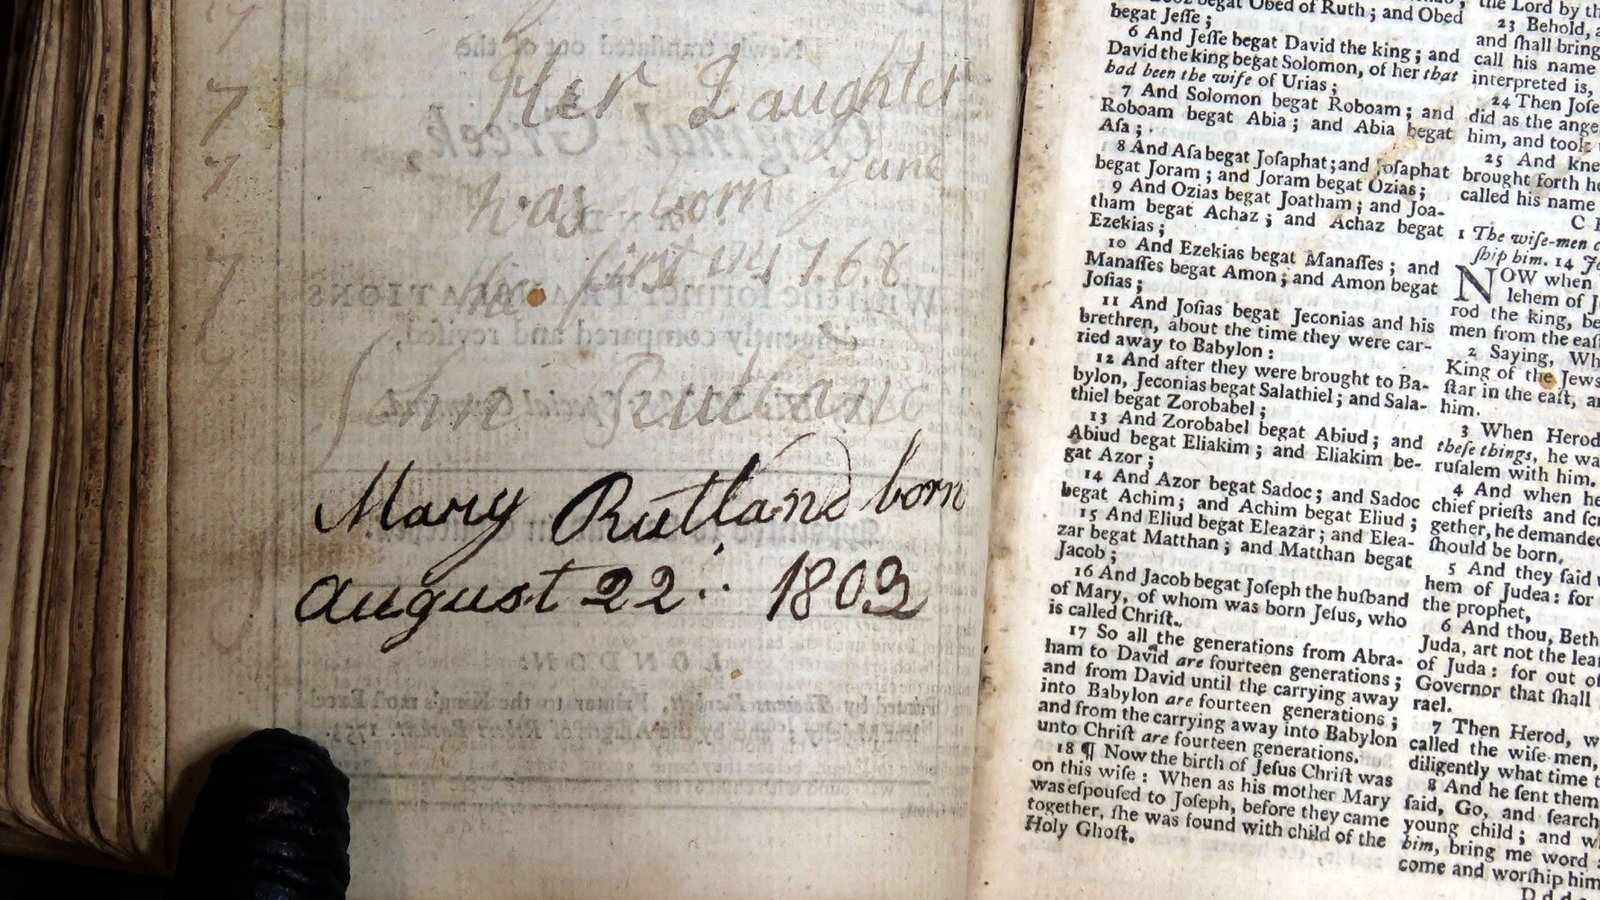 Her Daughter
was born June
the first in 1768
John Rutland
Mary Rutland born
august 22 : 1803
begat Obed of Ruth ; and Obed
begat Jeſſe ;
6 And Jeſſe begat David the king ; and
David the king begat Solomon, of her that
had been the wife of Urias ;
7 And Solomon begat Roboam ; and
Roboam begat Abia ; and Abia begat
Aſa ;
8 And Aſa begat Joſaphat ; and Joſaphat
begat Joram ; and Joram begat Ozias ;
9 And Ozias begat Joatham ; and Joa-
tham begat Achaz ; and Achaz begat
Ezekias ;
10 And Ezekias begat Manaſſes ; and
Manaſſes begat Amon ; and Amon begat
Joſias ;
11 And Joſias begat Jeconias and his
brethren, about the time they were car-
ried away to Babylon :
12 And after they were brought to Ba-
bylon, Jeconias begat Salathiel ; and Sala-
thiel begat Zorobabel ;
13 And Zorobabel begat Abiud ; and
Abiud begat Eliakim ; and Eliakim be-
gat Azor ;
14 And Azor begat Sadoc ; and Sadoc
begat Achim ; and Achim begat Eliud ;
15 And Eliud begat Eleazar ; and Elea-
zar begat Matthan ; and Matthan begat
Jacob ;
16 And Jacob begat Joſeph the huſband
of Mary, of whom was born Jeſus, who
is called Chriſt.
17 So all the generations from Abra-
ham to David are fourteen generations ;
and from David until the carrying away
into Babylon are fourteen generations ;
and from the carrying away into Babylon
unto Chriſt are fourteen generations.
18 ¶ Now the birth of Jeſus Chriſt was
on this wiſe : When as his mother Mary
was eſpouſed to Joſeph, before they came
together, ſhe was found with child of the
Holy Ghoſt.
the Lord by th
23 Behold, a
and ſhall bring
call his name
interpreted is,
24 Then Joſe
did as the ange
him, and took
25 And kne
brought forth he
called his name
1 The wiſe-men c
ſhip him. 14 Jo
NOW when
lehem of J
rod the king, be
men from the eaſt
2 Saying, Wh
King of the Jews
ſtar in the eaſt, a
him.
3 When Herod
theſe things, he wa
ruſalem with him.
4 And when he
chief prieſts and ſcr
gether, he demanded
ſhould be born.
5 And they ſaid
hem of Judea : for
the prophet,
6 And thou, Beth
Juda, art not the lea
of Juda : for out of
Governor that ſhall
rael.
7 Then Herod, w
called the wiſe-men,
diligently what time t
8 And he ſent them
ſaid, Go, and ſearch
young child ; and w
him, bring me word
come and worſhip him